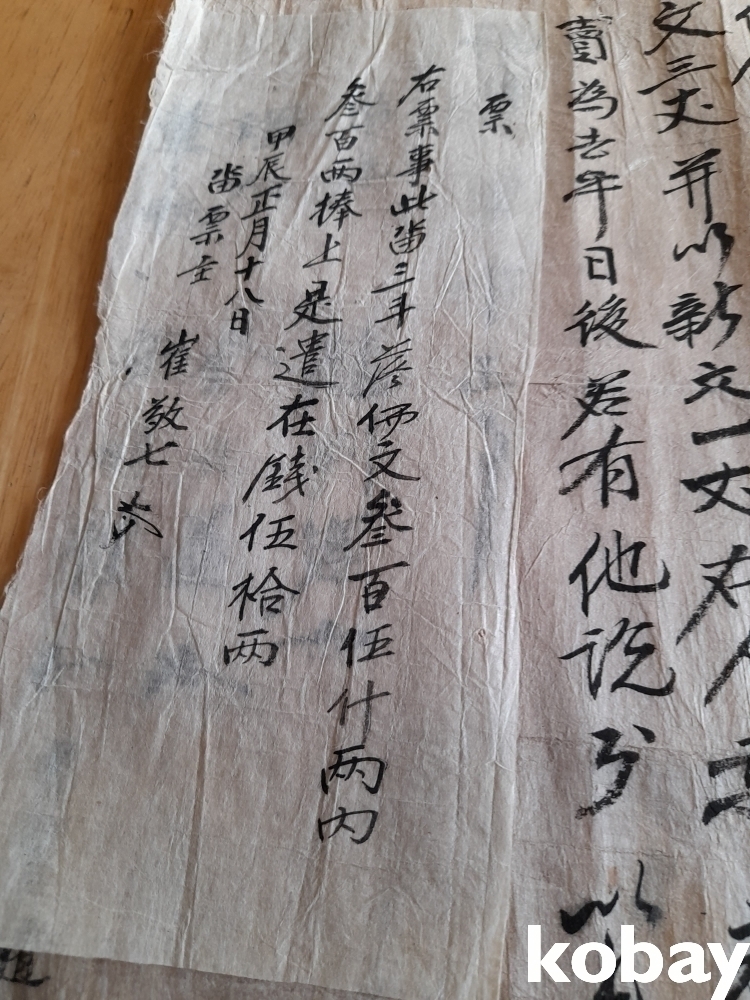 文三丈 幷以新文一丈
賣爲去乎日後若有他說
票
右票事此畓三斗 價文叄百伍什兩內
叄百兩捧上是遣在錢伍拾兩
甲辰正月十八日
畓票主 崔敬七
kobay